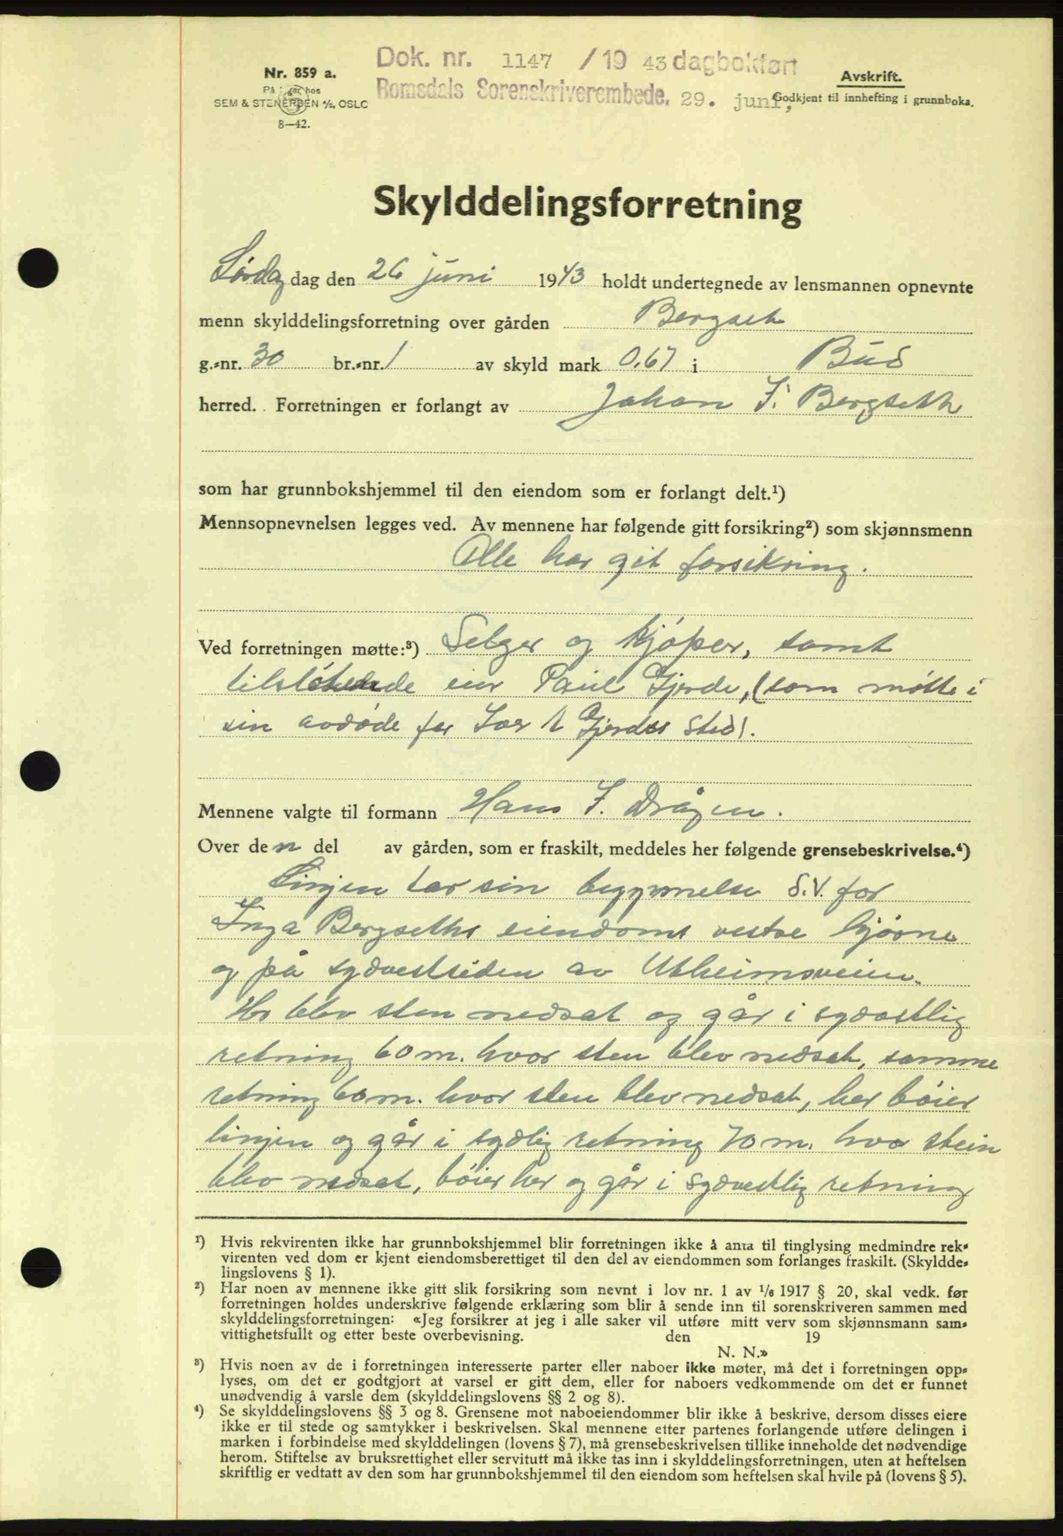 Dok. nr. 1147 / 19 43 dagbokført
Romsdals Sorenskriverembede, 29. juni,
Nr. 859 a.
På lager hos
SEM & STENERSEN A/S, OSLO
8—42.
Avskrift.
Godkjent til innhefting i grunnboka.
Skylddelingsforretning
dag den 26 juni 1943 holdt undertegnede av lensmannen opnevnte
menn skylddelingsforretning over gården Bergset
g.-nr. 30 br.-nr. 1 av skyld mark 0.67 i Bud
herred. Forretningen er forlangt av Johan I. Bergseth
som har grunnbokshjemmel til den eiendom som er forlangt delt.¹)
Mennsopnevnelsen legges ved. Av mennene har følgende gitt forsikring²) som skjønnsmenn
Alle har git forsikring.
Ved forretningen møtte:³) Selger og kjøper, samt
eier Paul Gjerde, (som møtte i
sin avdøde far Iver Gjerdes sted).
Mennene valgte til formann Hans I. Drågen.
Over den del av gården, som er fraskilt, meddeles her følgende grensebeskrivelse.⁴)
Linjen tar sin begynnelse S.V. for
Inga Bergseths eiendoms vestre hjørne
og på sydvestsiden av Utheimsveien.
Her blev sten nedsat og går i sydvestlig
retning 60 m. hvor sten blev nedsat, samme
retning 60 m. hvor sten blev nedsat, her bøier
linjen og går i sydlig retning 70 m. hvor stein
blev nedsat, bøier her og går i sydvestlig retning
¹) Hvis rekvirenten ikke har grunnbokshjemmel blir forretningen ikke å anta til tinglysing medmindre rek-
virenten ved dom er kjent eiendomsberettiget til den del av eiendommen som forlanges fraskilt. (Skyldde-
lingslovens § 1).
²) Har noen av mennene ikke gitt slik forsikring som nevnt i lov nr. 1 av 1/6 1917 § 20, skal vedk. før
forretningen holdes underskrive følgende erklæring som blir å sende inn til sorenskriveren sammen med
skylddelingsforretningen: «Jeg forsikrer at jeg i alle saker vil utføre mitt verv som skjønnsmann sam-
vittighetsfullt og etter beste overbevisning. den 19
N. N.»
³) Hvis noen av de i forretningen interesserte parter eller naboer ikke møter, må det i forretningen opp-
lyses, om det er godtgjort at varsel er gitt dem, eller for naboers vedkommende om det er funnet
unødvendig å varsle dem (skylddelingslovens §§ 2 og 8).
⁴) Se skylddelingslovens §§ 3 og 8. Grensene mot naboeiendommer blir ikke å beskrive, dersom disses eiere
ikke er til stede og samtykker i beskrivelsen. Skal mennene etter partenes forlangende utføre delingen i
marken i forbindelse med skylddelingen (lovens § 7), må grensebeskrivelsen tillike inneholde det nødvendige
herom. Stiftelse av bruksrettighet eller servitutt må ikke tas inn i skylddelingsforretningen, uten at heftelsen
skriftlig er vedtatt av den som har grunnbokshjemmel til den eiendom som heftelsen skal hvile på (lovens § 5).